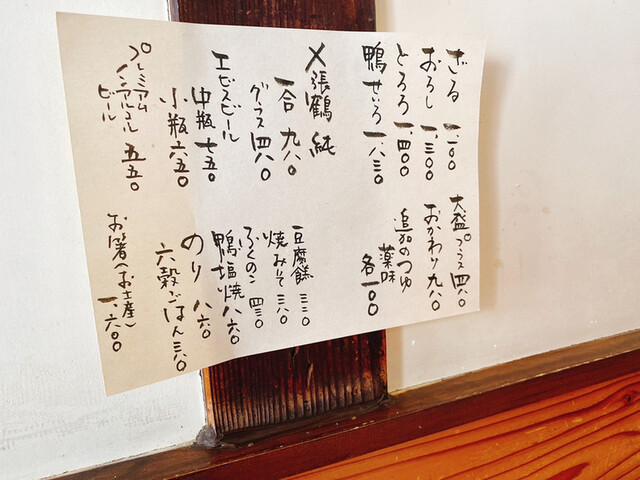 ざる 一、一〇〇
おろし 一、三〇〇
とろろ 一、四〇〇
鴨せいろ 一、八三〇
大盛プラス 四八〇
おかわり 九八〇
追加のつゆ
薬味
各一〇〇
〆張鶴 純
一合 九八〇
グラス 四八〇
エビスビール
中瓶 七五〇
小瓶 六五〇
プレミアム
ノンアルコール
ビール 五五〇
豆腐餻 三三〇
焼みそ 三八〇
ふくのこ 四三〇
鴨塩焼 八六〇
のり 八六〇
六穀ごはん 三八〇
お箸(お土産)
一、六〇〇